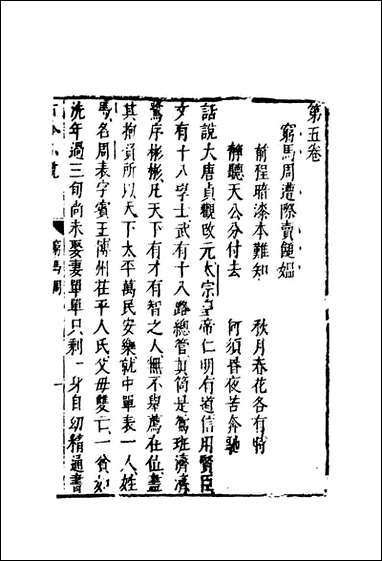 第五卷
窮馬周遭際賣䭔媼
前程暗漆本難知　秋月春花各有時
靜聽天公分付去　何須昏夜苦奔馳
話說大唐貞觀改元太宗皇帝仁明有道信用賢臣
文有十八學士武有十八路總管真箇是鴛班濟濟
鷺序彬彬凡天下有才有智之人無不舉薦在位盡
其抱負所以天下太平萬民安樂就中單表一人姓
馬名周表字賓王博州茌平人氏父母雙亡一貧如
洗年過三旬尚未娶妻單單只剩一身自幼精通書
窮馬周
一